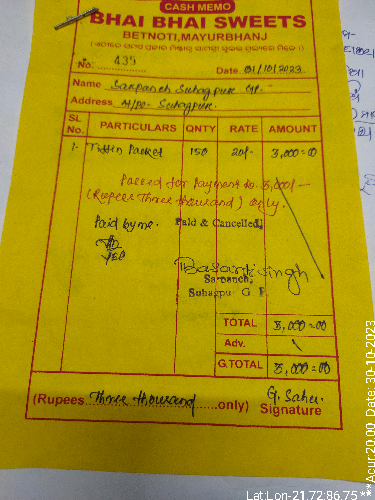 CASH MEMO
BHAI BHAI SWEETS
BETNOTI, MAYURBHANJ
No. 435 Date 01/10/2023
Name Sarpanch Suhagpur GP.
Address At/po- Suhagpur.
SL No. PARTICULARS QNTY RATE AMOUNT
1- Tiffin Packet 150 20/- 3,000=00
Passed for Payment to 3,000/-
(Rupees Three thousand) only.
Paid by me. Paid & Cancelled
Basanti Singh
Sarpanch,
Suhagpur G. P.
TOTAL 3,000=00
Adv.
G.TOTAL 3,000=00
(Rupees Three thousand only) G. Sahu
Signature
Lat:Lon-21.72:86.75
***Acur:20.00, Date: 30-10-2023